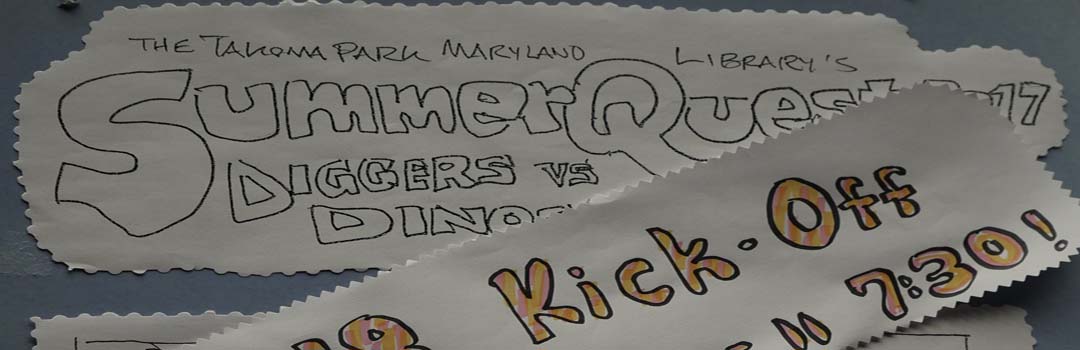 THE TAKOMA PARK MARYLAND LIBRARY'S
Summer Quest
DIGGERS VS
Kick-Off
7:30!